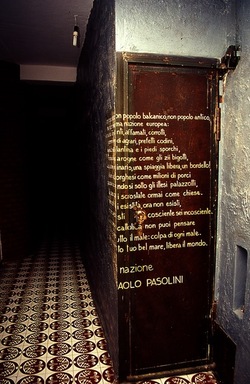 on popolo balcanico, non popolo antico,
ma nazione europea:
nti, affamati, corrotti,
di agrari, prefetti codini,
lantina e i piedi sporchi,
arogne come gli zii bigotti,
inario, una spiaggia libera, un bordello!
orghesi come milioni di porci
ndosi sotto gli illesi palazzotti,
i scrostate ormai come chiese.
i esistita, ora non esisti,
sti cosciente sei incosciente.
cattolica non puoi pensare
tto male: colpa di ogni male.
to tuo bel mare, libera il mondo.
nazione
AOLO PASOLINI